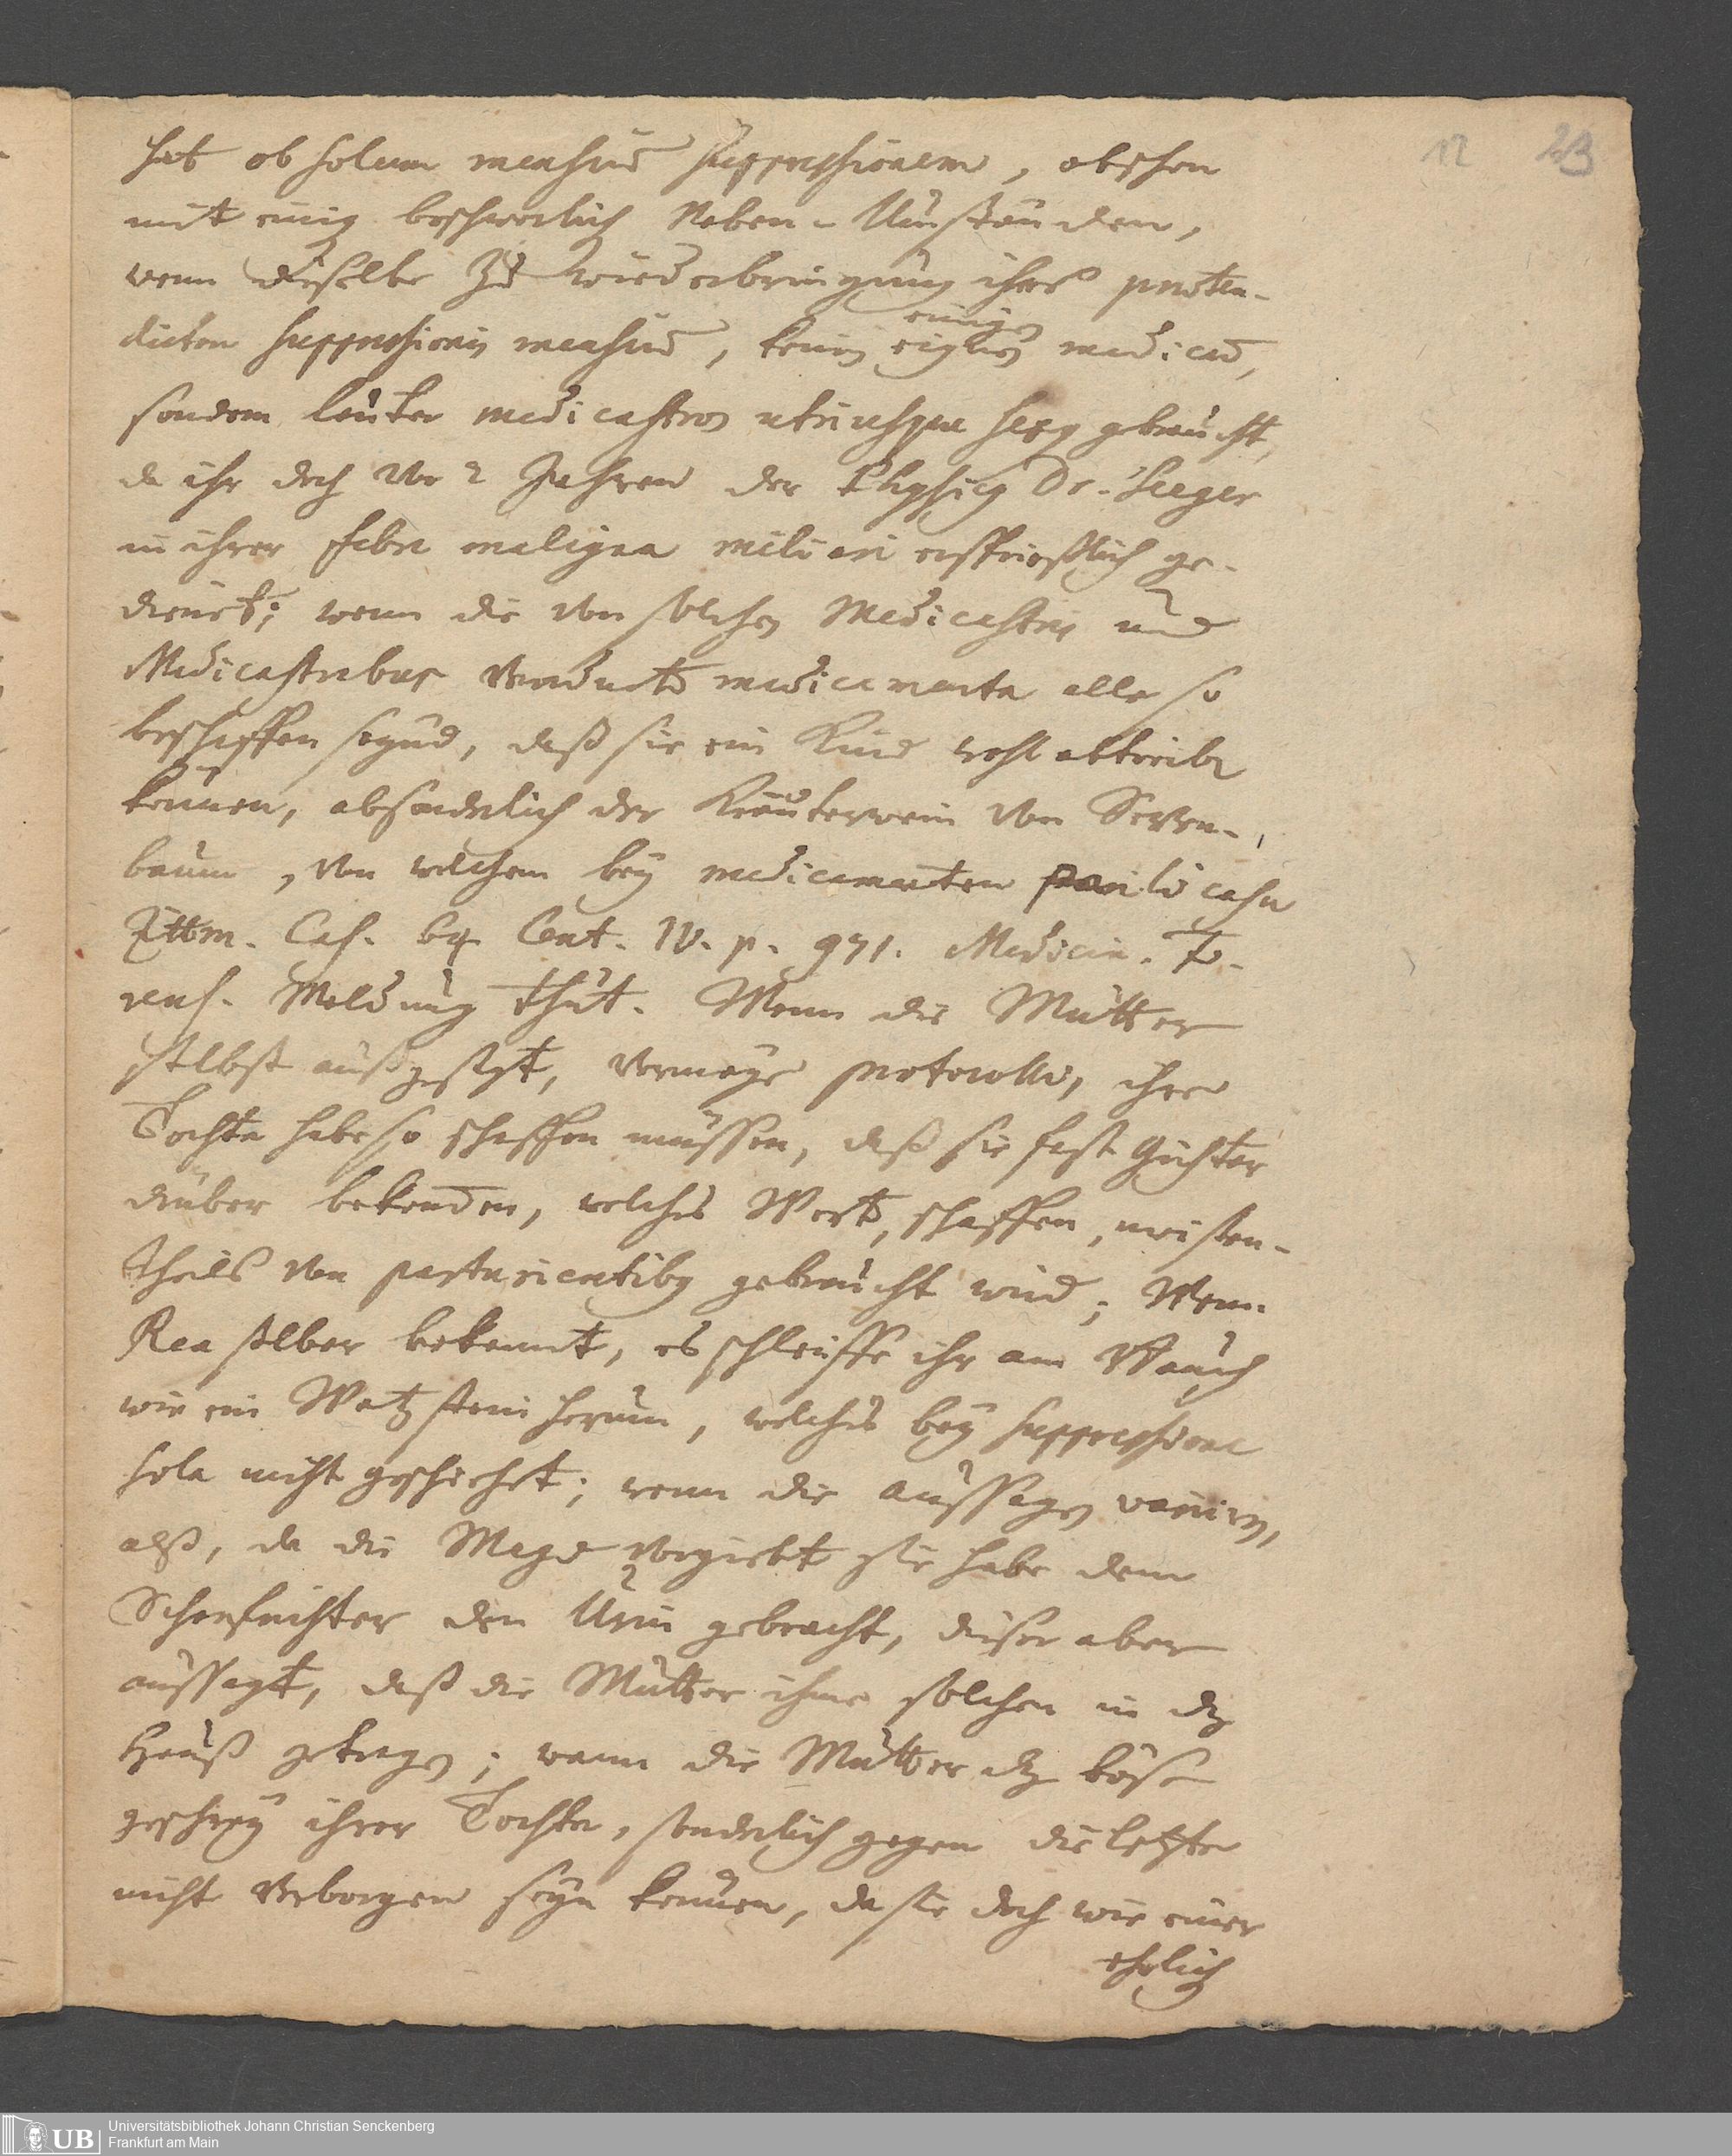 12 23
hat ob solam mensium suppressionem, obschon
mit einig beschwerlich Neben-Umständen,
wenn dieselbe zu wiederbringung ihres präten-
dirten suppressionis mensium, keinen einigen medicum,
sondern lauter medicastros utriusque sexq gebraucht,
da ihr doch vor 2 Jahren der Physicq Dr. Seeger
in ihrer febre maligna miliari ersprießlich ge-
dienet; wenn die von solchen Medicastris und
Medicastrabus medicamenta alle so
beschaffen seynd, daß sie ein Kind wohl abtreiben
können, absonderlich der Kräuterwein von Seven-
baum, von welchem bey medicamenten casu
Zittm. Cas. 64 Cent. IV. p. 971. Medicin. Fo-
rens. Meldung thut. Wenn die Mutter
selbst außgesagt, vermöge protocolli, ihre
Tochter habe so schaffen müssen, daß sie fast Gichter
drüber bekommen, welches Wort, schaffen, meisten-
theils von parturientibq gebraucht wird; Wenn
Rea selber bekennt, es schleiffe ihr am Bauch
wie ein Wetzstein herum, welches bey suppressione
sola nicht geschiehet; wenn die Aussagen variiren,
alß, da die Magd vorgiebt sie habe dem
Scharfrichter den Urin gebracht, dieser aber
aussagt, daß die Mutter ihme solchen in das
Hauß getragen; wann die Mutter das böse
geschrey ihrer Tochter, sonderlich gegen die letzte
nicht verborgen seyn können, da sie doch wie einer
ehrlich
UB
Universitätsbibliothek Johann Christian Senckenberg
Frankfurt am Main